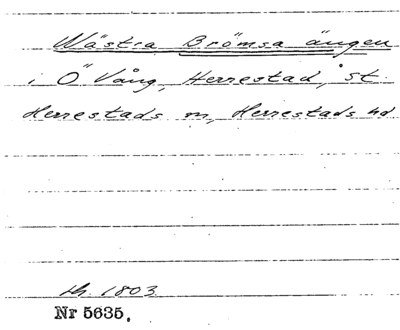 Wästra Brömsa ängen
i Ö Vång, Herrestad, st.
Herrestads sn, Herrestads hd
1803
Nr 5635.